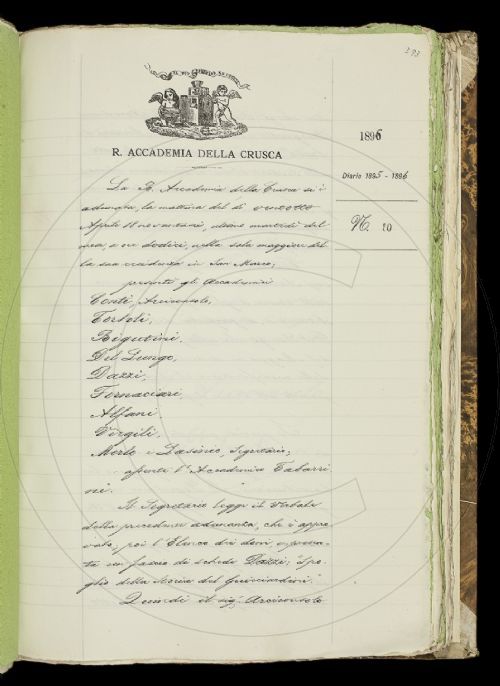 393
R. ACCADEMIA DELLA CRUSCA
1896
Diario 1895 - 1896
N. 10
La R. Accademia della Crusca si è
adunata, la mattina del dì ventotto
Aprile 18 novantasei, ultimo martedì del
mese, a ore dodici, nella sala maggiore del
la sua residenza in San Marco;
presenti gli Accademici
Conti, Arciconsolo,
Tortoli,
Rigutini,
Del Lungo,
Dazzi,
Fornaciari,
Alfani,
Virgili,
Morte Segretario;
assente l'Accademico Tabarri
ni.
Il Segretario legge il Verbale
della precedente adunanza, che è appro
vato; poi l'Elenco dei doni, e presen
ta un fascio di schede Dazzi: "Spo
glio della Storia del Guicciardini".
Quindi il sig. Arciconsolo